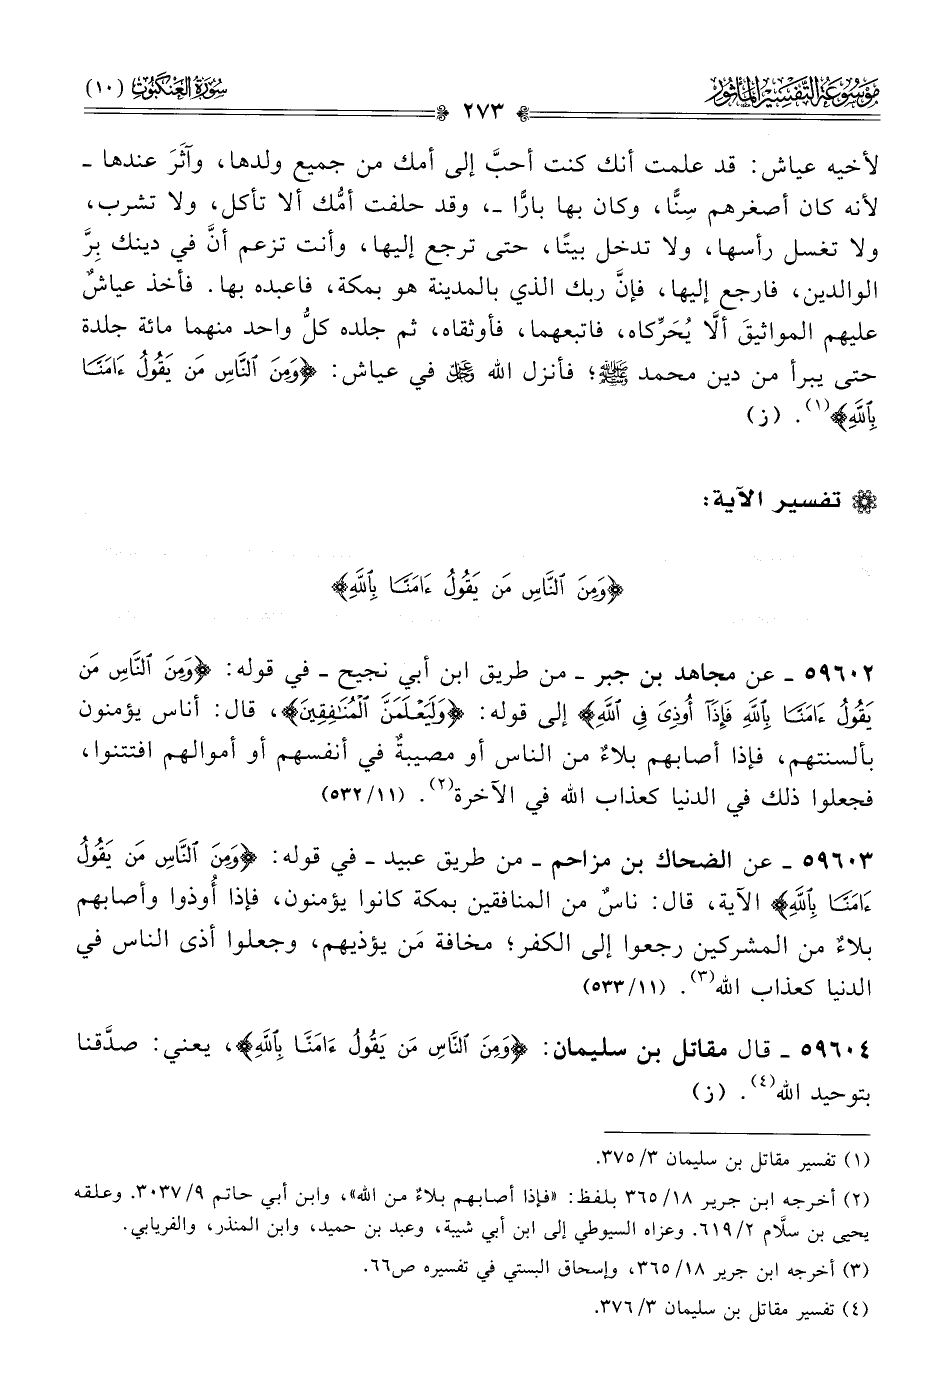 موسوعة التفسير المأثور
سورة العنكبوت (١٠)
٢٧٣
لأخيه عياش: قد علمت أنك كنت أحبَّ إلى أمك من جميع ولدها، وآثَرَ عندها ـ
لأنه كان أصغرهم سِنًّا، وكان بها بارًّا ـ، وقد حلفت أمُّك ألا تأكل، ولا تشرب،
ولا تغسل رأسها، ولا تدخل بيتًا، حتى ترجع إليها، وأنت تزعم أنَّ في دينك بِرَّ
الوالدين، فارجع إليها، فإنَّ ربك الذي بالمدينة هو بمكة، فاعبده بها. فأخذ عياشٌ
عليهم المواثيقَ ألَّا يُحَرِّكاه، فاتبعهما، فأوثقاه، ثم جلده كلُّ واحد منهما مائة جلدة
حتى يبرأ من دين محمد ﷺ؛ فأنزل الله ﷿ في عياش: ﴿وَمِنَ ٱلنَّاسِ مَن يَقُولُ ءَامَنَّا
بِٱللَّهِ﴾(١). (ز)
تفسير الآية:
﴿وَمِنَ ٱلنَّاسِ مَن يَقُولُ ءَامَنَّا بِٱللَّهِ﴾
٥٩٦٠٢ ـ عن مجاهد بن جبر ـ من طريق ابن أبي نجيح ـ في قوله: ﴿وَمِنَ ٱلنَّاسِ مَن
يَقُولُ ءَامَنَّا بِٱللَّهِ فَإِذَآ أُوذِىَ فِى ٱللَّهِ﴾ إلى قوله: ﴿وَلَيَعْلَمَنَّ ٱلْمُنَٰفِقِينَ﴾، قال: أناس يؤمنون
بألسنتهم، فإذا أصابهم بلاءٌ من الناس أو مصيبةٌ في أنفسهم أو أموالهم افتتنوا،
فجعلوا ذلك في الدنيا كعذاب الله في الآخرة(٢). (٥٣٢/١١)
٥٩٦٠٣ ـ عن الضحاك بن مزاحم ـ من طريق عبيد ـ في قوله: ﴿وَمِنَ ٱلنَّاسِ مَن يَقُولُ
ءَامَنَّا بِٱللَّهِ﴾ الآية، قال: ناسٌ من المنافقين بمكة كانوا يؤمنون، فإذا أُوذوا وأصابهم
بلاءٌ من المشركين رجعوا إلى الكفر؛ مخافة مَن يؤذيهم، وجعلوا أذى الناس في
الدنيا كعذاب الله(٣). (٥٣٣/١١)
٥٩٦٠٤ ـ قال مقاتل بن سليمان: ﴿وَمِنَ ٱلنَّاسِ مَن يَقُولُ ءَامَنَّا بِٱللَّهِ﴾، يعني: صدَّقنا
بتوحيد الله(٤). (ز)
(١) تفسير مقاتل بن سليمان ٣/ ٣٧٥.
(٢) أخرجه ابن جرير ١٨/ ٣٦٥ بلفظ: «فإذا أصابهم بلاءٌ من الله»، وابن أبي حاتم ٩/ ٣٠٣٧. وعلقه
يحيى بن سلَّام ٢/ ٦١٩. وعزاه السيوطي إلى ابن أبي شيبة، وعبد بن حميد، وابن المنذر، والفريابي.
(٣) أخرجه ابن جرير ١٨/ ٣٦٥، وإسحاق البستي في تفسيره ص٦٦.
(٤) تفسير مقاتل بن سليمان ٣/ ٣٧٦.